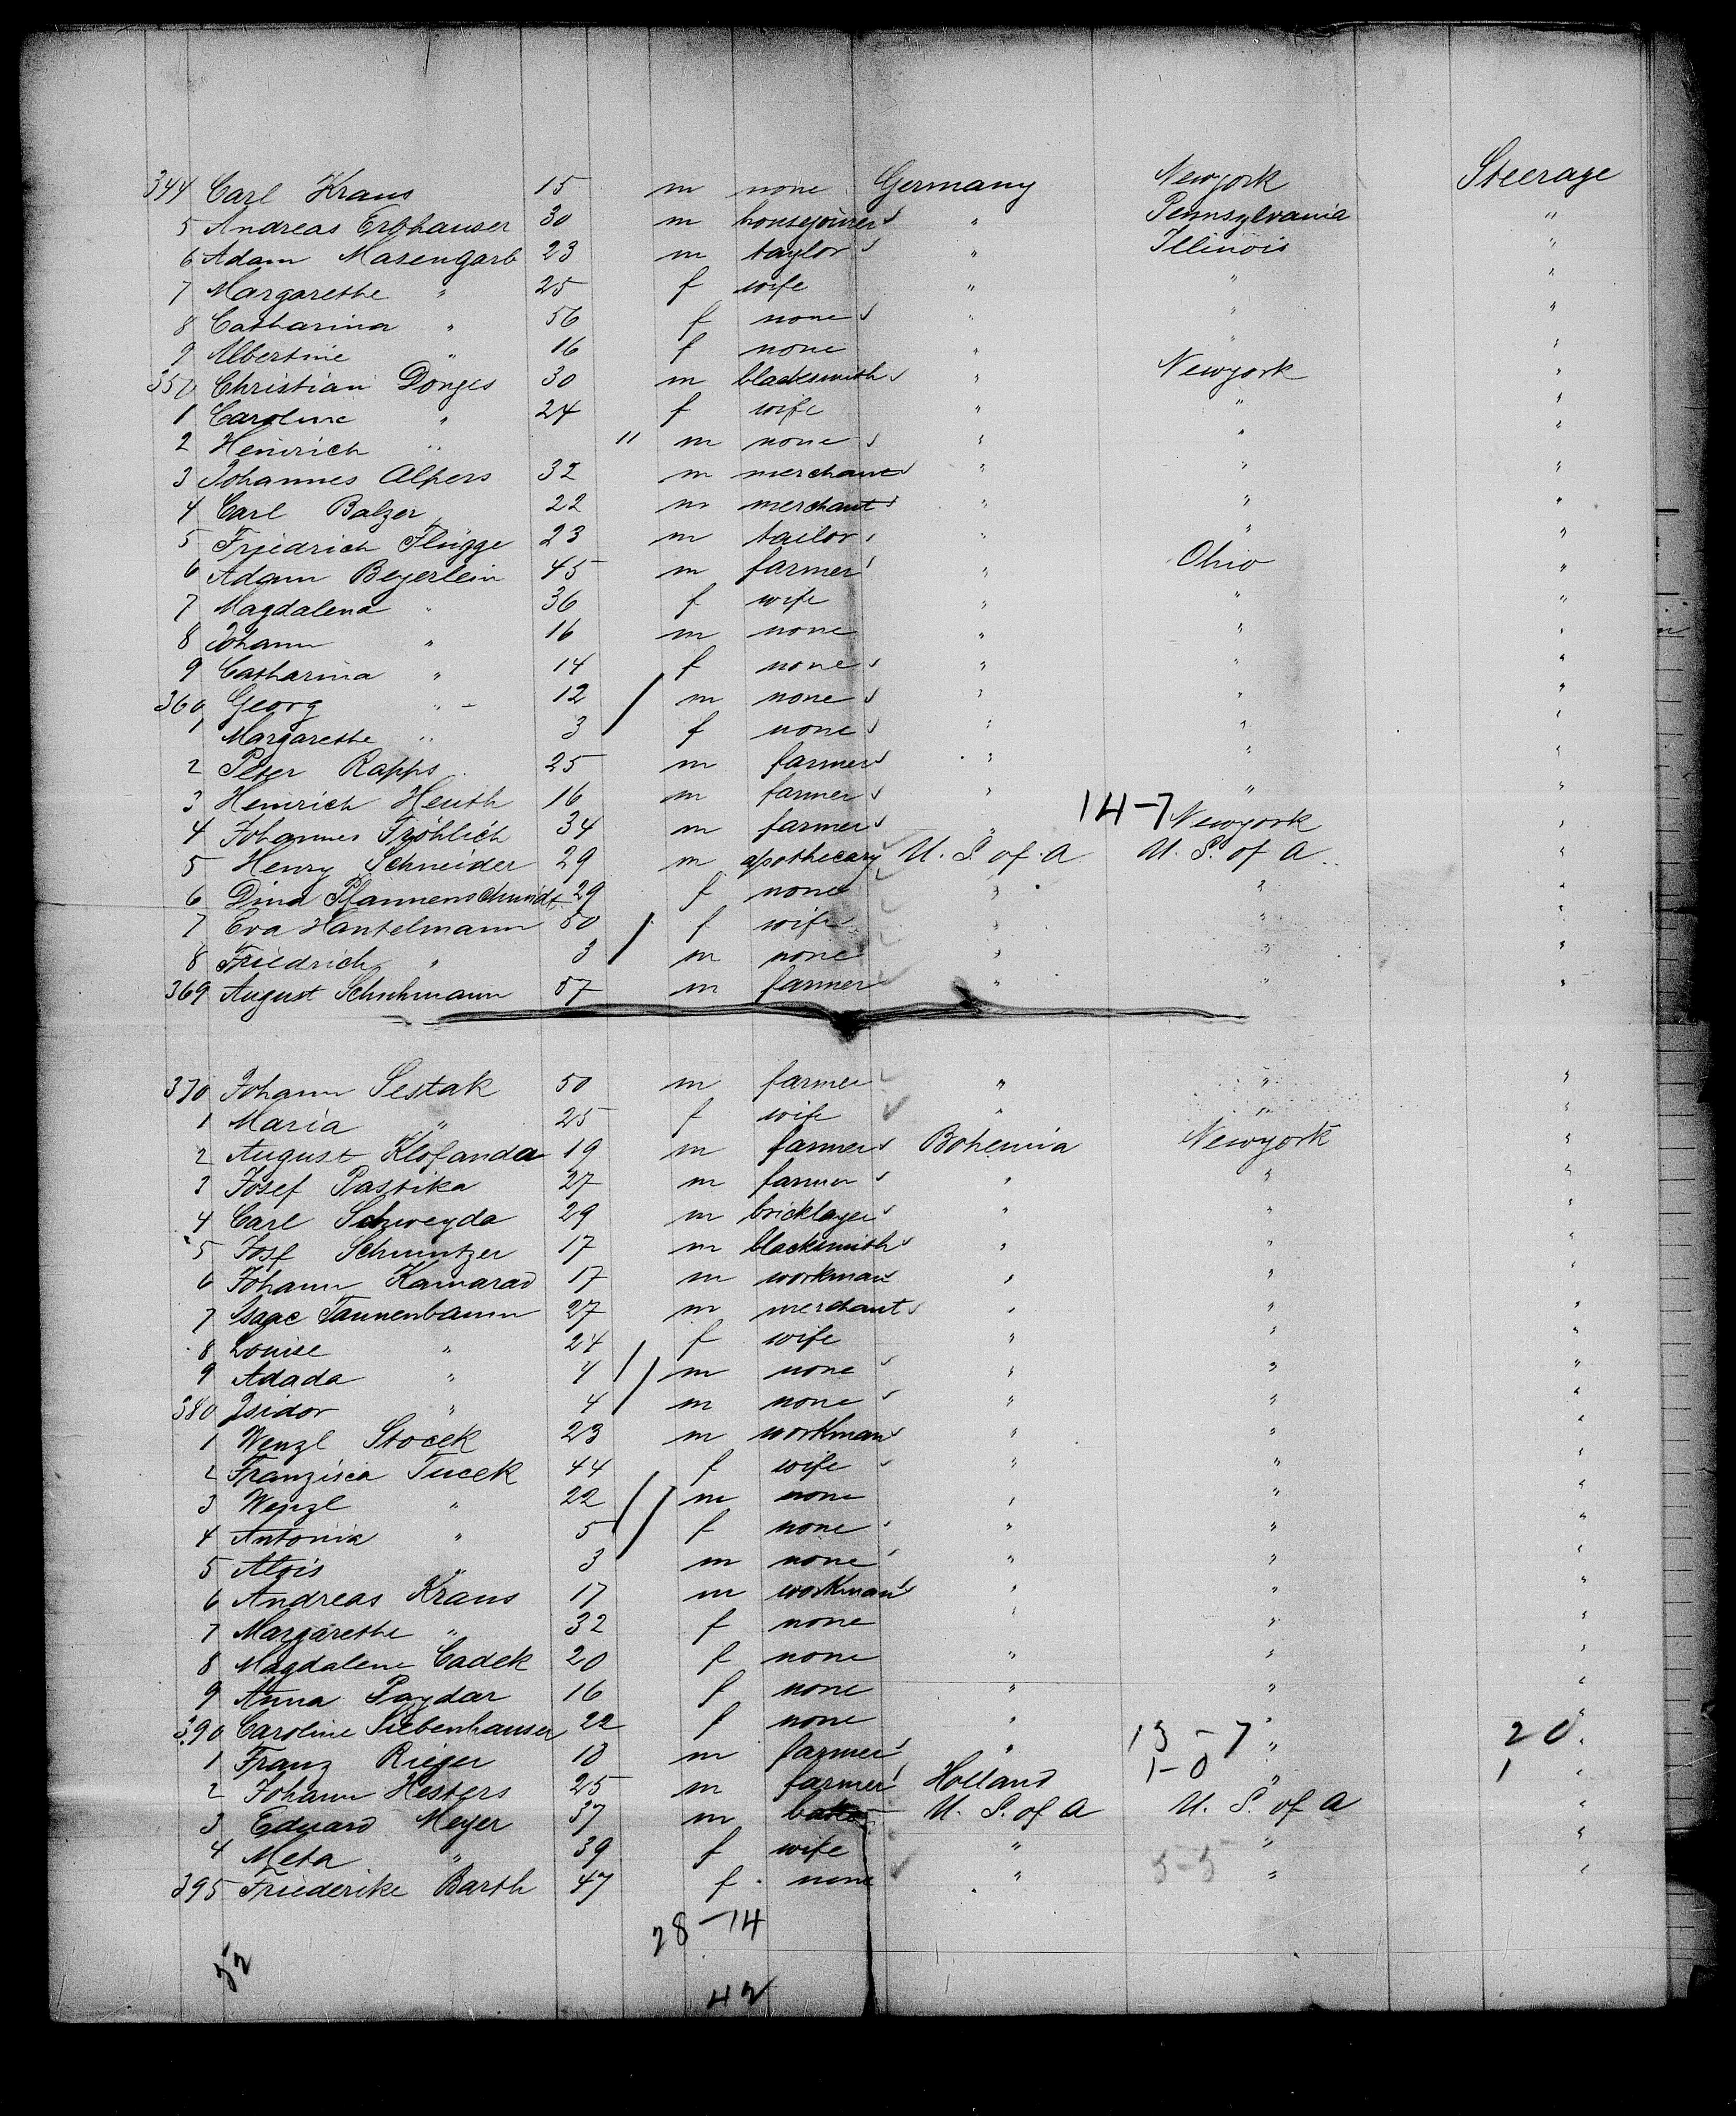 344 Carl Kraus 15 m none Germany Newyork Steerage
5 Andreas Erbhauser 30 m housejoiner " Pennsylvania "
6 Adam Masengarb 23 m taylor " Illinois "
7 Margarethe " 25 f wife " " "
8 Catharina " 56 f none " " "
9 Albertine " 16 f none " " "
350 Christian Donges 30 m blacksmith " Newyork "
1 Caroline " 24 f wife " " "
2 Heinrich " 11 m none " " "
3 Johannes Alpers 32 m merchant " " "
4 Carl Balzer 22 m merchant " " "
5 Friedrich Flügge 23 m tailor " " "
6 Adam Beyerlein 45 m farmer " Ohio "
7 Magdalena " 36 f wife " " "
8 Johann " 16 m none " " "
9 Catharina " 14 f none " " "
360 Georg " 12 m none " " "
1 Margarethe " 3 f none " " "
2 Peter Rapps 25 m farmer " " "
3 Heinrich Heuth 16 m farmer " " "
4 Johannes Fröhlich 34 m farmer " 14-7 Newyork "
5 Henry Schneider 29 m apothecary U. S. of A U. S. of A "
6 Dina Pfannenschmidt 29 f none " " "
7 Eva Hantelmann 50 f wife " " "
8 Friedrich " 3 m none " " "
369 August Schuhmann 57 m farmer " " "
370 Johann Sestak 50 m farmer " " "
1 Maria " 25 f wife " " "
2 August Klofanda 19 m farmer Bohemia Newyork "
3 Josef Pastika 27 m farmer " " "
4 Carl Schweyda 29 m bricklayer " " "
5 Josf Schmintzer 17 m blacksmith " " "
6 Johann Kamarad 17 m workman " " "
7 Isaac Tannenbaum 27 m merchant " " "
8 Louise " 24 f wife " " "
9 Adada " 4 m none " " "
380 Isidor " 4 m none " " "
1 Wenzl Stocek 23 m workman " " "
2 Franzisca Tucek 44 f wife " " "
3 Wenzl " 22 m none " " "
4 Antonia " 5 f none " " "
5 Alois " 3 m none " " "
6 Andreas Kraus 17 m workman " " "
7 Margarethe " 32 f none " " "
8 Magdalene Cadek 20 f none " " "
9 Anna Paydar 16 f none " " "
390 Caroline Siebenhauser 22 f none " " "
1 Franz Rieger 18 m farmer " 13-7 " 20 "
2 Johann Hesters 25 m farmer Holland 1-0 " 1 "
3 Eduard Meyer 37 m baker U. S. of A U. S. of A "
4 Meta " 39 f wife " " "
395 Friederike Barth 47 f none " 5-5 " "
28-14
52
42